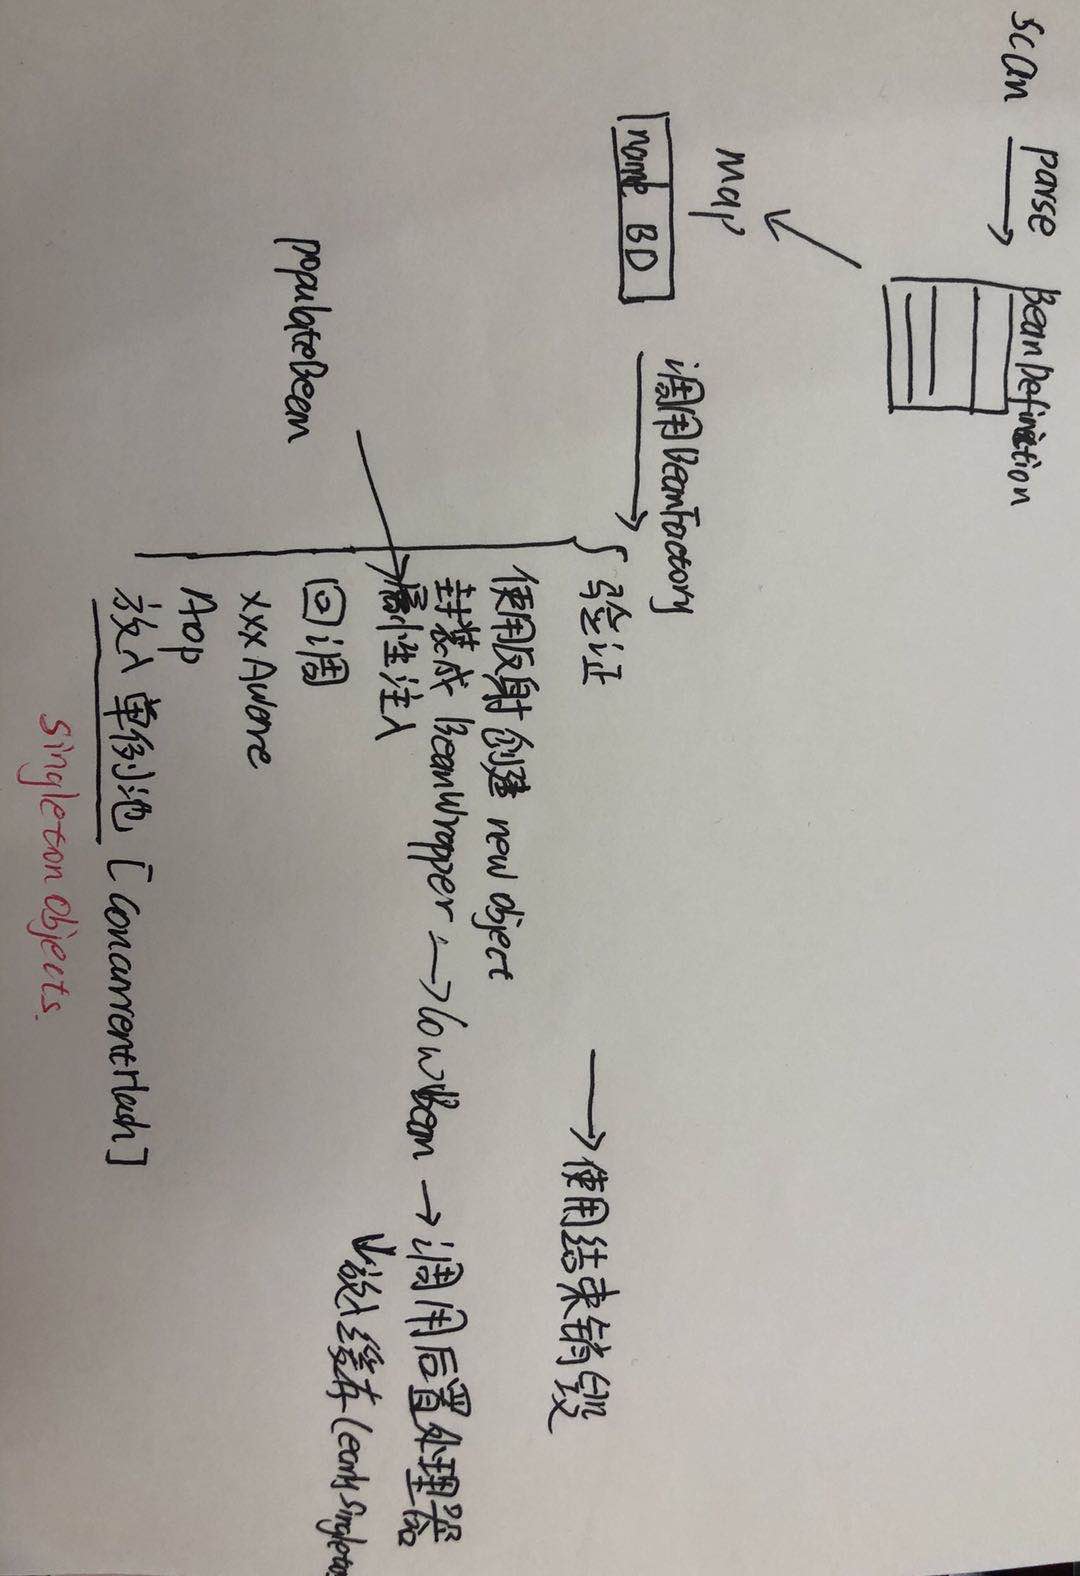 scan
parse
BeanDefinition
map
name BD
调用BeanFactory
验证
使用结束销毁
使用反射创建 new object
封装成 BeanWrapper
调用后置处理器
属性注入
放入缓存(earlySingleto
populateBean
回调
xxxAware
Aop
放入单例池 [ConcurrentHash]
singletonObjects.